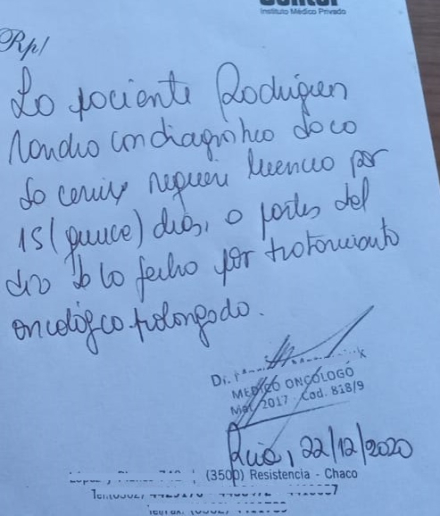 Instituto Médico Privado
Rp/
La paciente Rodriguez
Sandra con diagnóstico de ca
de cervix requiere licencia por
15 (quince) días, a partir del
día de la fecha por tratamiento
oncológico prolongado.
Dr.
MEDICO ONCÓLOGO
Mat. 2017 - Cod. 818/9
Rcia, 22/12/2020
(3500) Resistencia - Chaco